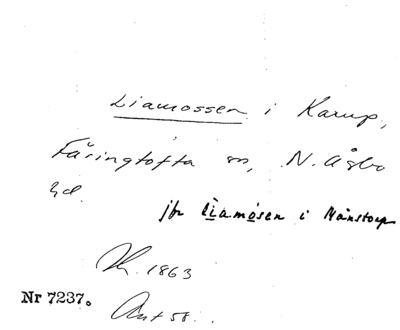 Liamossen i Karup,
Färingtofta sn, N. Åsbo
hd.
jfr Liamosen i Månstorp
K. 1863
Nr 7237.
Ant 58.